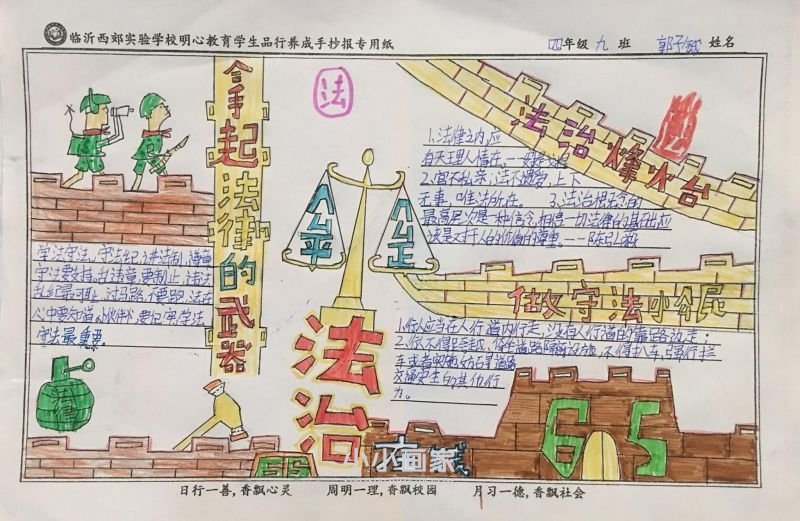 临沂西郊实验学校明心教育学生品行养成手抄报专用纸
四年级 九 班 姓名
拿起法律的武器
法
法治烽火台
1.法律之内,应
有天理人情在。
2.官不私亲,法不遗爱,上下
无事,唯法所在。 3.法治
最高层次是一种信念,相信一切法律的基础,应
该是对于人的价值的尊重。
公平
公正
做守法小公民
学法守法,守法纪,讲法制,
守法要支持,乱违章,要制止,违法
乱纪最可耻,过马路,不要跑,法在
心中要知道,小伙伴,要记牢,学法
守法最重要。
1.行人应当在人行道内行走,没有人行道的靠路边走;
2.行人不得跨越、倚坐道路隔离设施,不得扒车、强行拦
车或者实施妨碍道路
交通安全的其他行
为。
法治
法律
65
小小画家
日行一善,香飘心灵 周明一理,香飘校园 月习一德,香飘社会